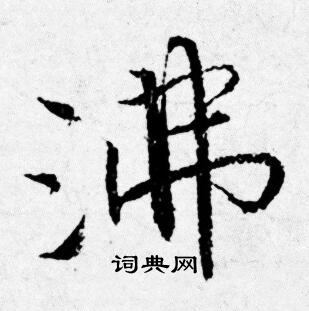 沸
词典网